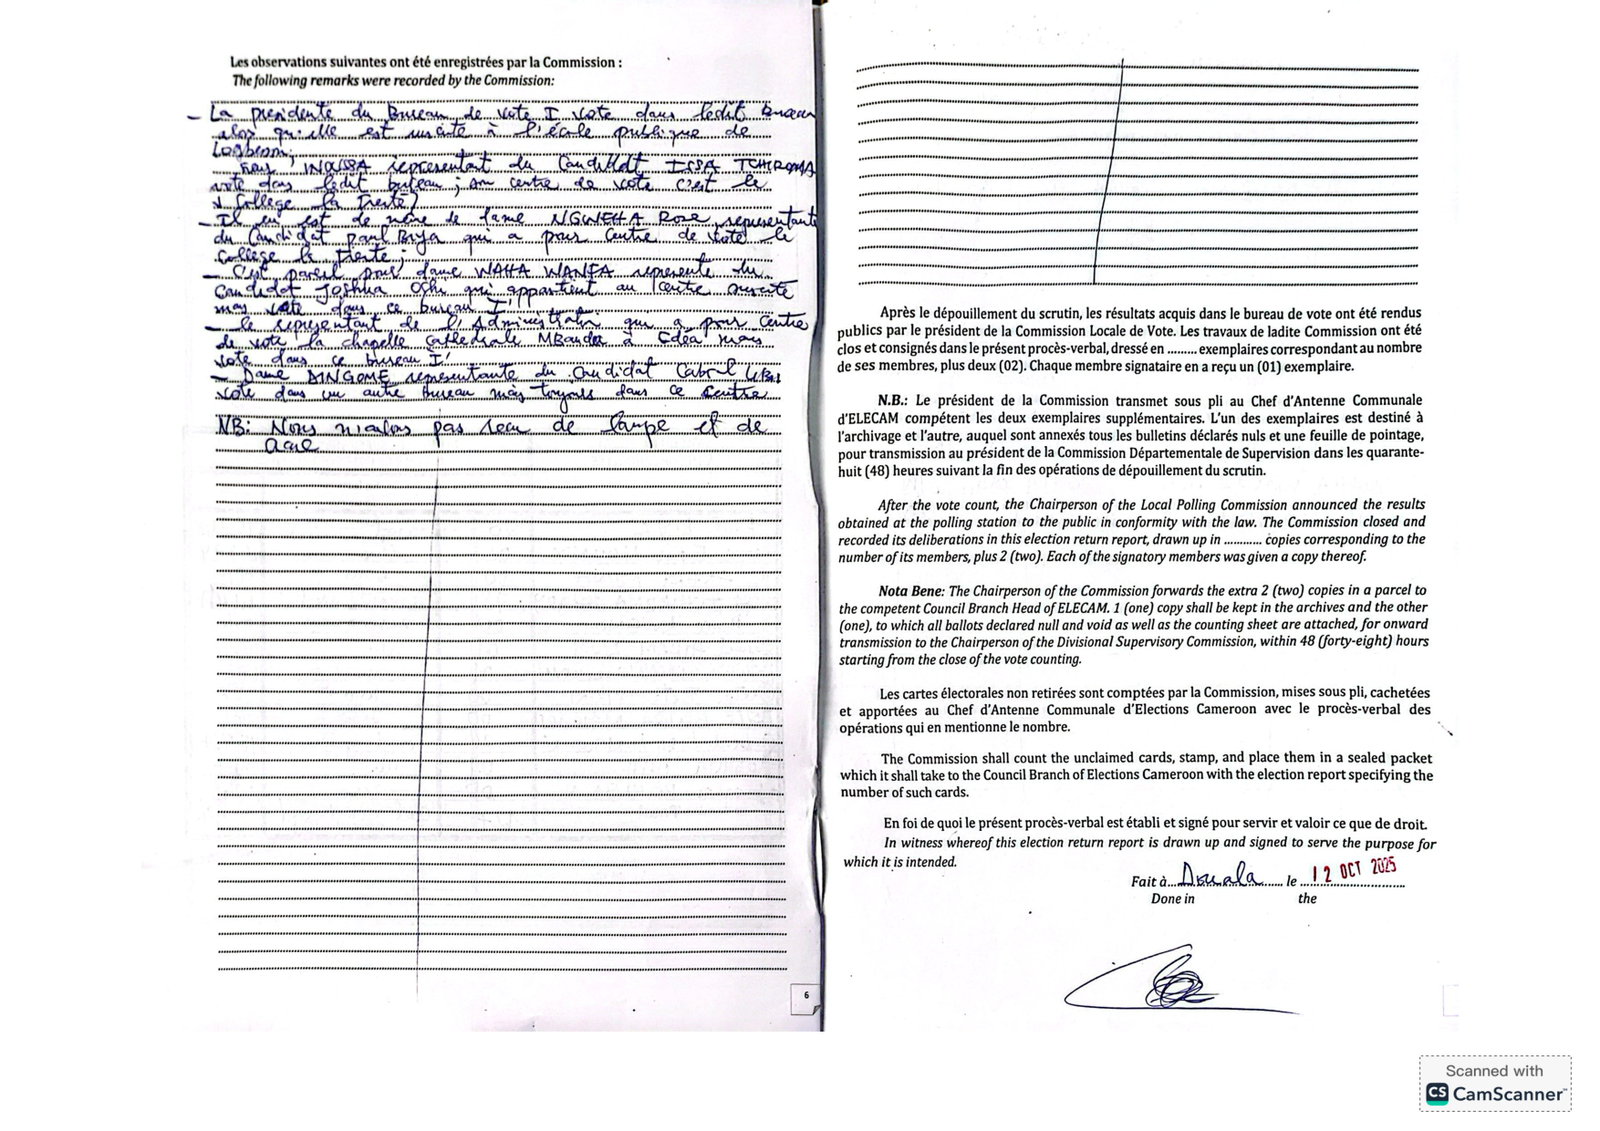 Les observations suivantes ont été enregistrées par la Commission :
The following remarks were recorded by the Commission:
- La présidente du Bureau de vote I vote dans ledit bureau
alors qu'elle est inscrite à l'école publique de
Logbessou;
INOUSSA representant du Candidat ISSA TCHIROMA
vote dans ledit bureau ; son centre de vote c'est le
College la Trente)
- Il en est de même de dame NGWEHA Rose representante
du Candidat paul Biya qui a pour Centre de vote le
College la Trente ;
- C'est pareil pour dame WAHA WANFA represente du
Candidat Joshua Oshi qui appartient au Centre suscité
mais vote dans ce bureau I'
- le representant de l'Administration qui a pour Centre
de vote la chapelle Cathédrale MBanda à Edéa mais
vote dans ce bureau I'
- Dame DINGOME representante du Candidat Cabral Libii
vote dans un autre bureau mais toujours dans ce Centre
NB: Nous n'avons pas recu de lampe et de
6
Après le dépouillement du scrutin, les résultats acquis dans le bureau de vote ont été rendus
publics par le président de la Commission Locale de Vote. Les travaux de ladite Commission ont été
clos et consignés dans le présent procès-verbal, dressé en ......... exemplaires correspondant au nombre
de ses membres, plus deux (02). Chaque membre signataire en a reçu un (01) exemplaire.
N.B.: Le président de la Commission transmet sous pli au Chef d'Antenne Communale
d'ELECAM compétent les deux exemplaires supplémentaires. L'un des exemplaires est destiné à
l'archivage et l'autre, auquel sont annexés tous les bulletins déclarés nuls et une feuille de pointage,
pour transmission au président de la Commission Départementale de Supervision dans les quarante-
huit (48) heures suivant la fin des opérations de dépouillement du scrutin.
After the vote count, the Chairperson of the Local Polling Commission announced the results
obtained at the polling station to the public in conformity with the law. The Commission closed and
recorded its deliberations in this election return report, drawn up in ............ copies corresponding to the
number of its members, plus 2 (two). Each of the signatory members was given a copy thereof.
Nota Bene: The Chairperson of the Commission forwards the extra 2 (two) copies in a parcel to
the competent Council Branch Head of ELECAM. 1 (one) copy shall be kept in the archives and the other
(one), to which all ballots declared null and void as well as the counting sheet are attached, for onward
transmission to the Chairperson of the Divisional Supervisory Commission, within 48 (forty-eight) hours
starting from the close of the vote counting.
Les cartes électorales non retirées sont comptées par la Commission, mises sous pli, cachetées
et apportées au Chef d'Antenne Communale d'Elections Cameroon avec le procès-verbal des
opérations qui en mentionne le nombre.
The Commission shall count the unclaimed cards, stamp, and place them in a sealed packet
which it shall take to the Council Branch of Elections Cameroon with the election report specifying the
number of such cards.
En foi de quoi le présent procès-verbal est établi et signé pour servir et valoir ce que de droit.
In witness whereof this election return report is drawn up and signed to serve the purpose for
which it is intended.
Fait à... Douala ...... le ... 12 OCT 2025
Done in the
Scanned with
CS CamScanner